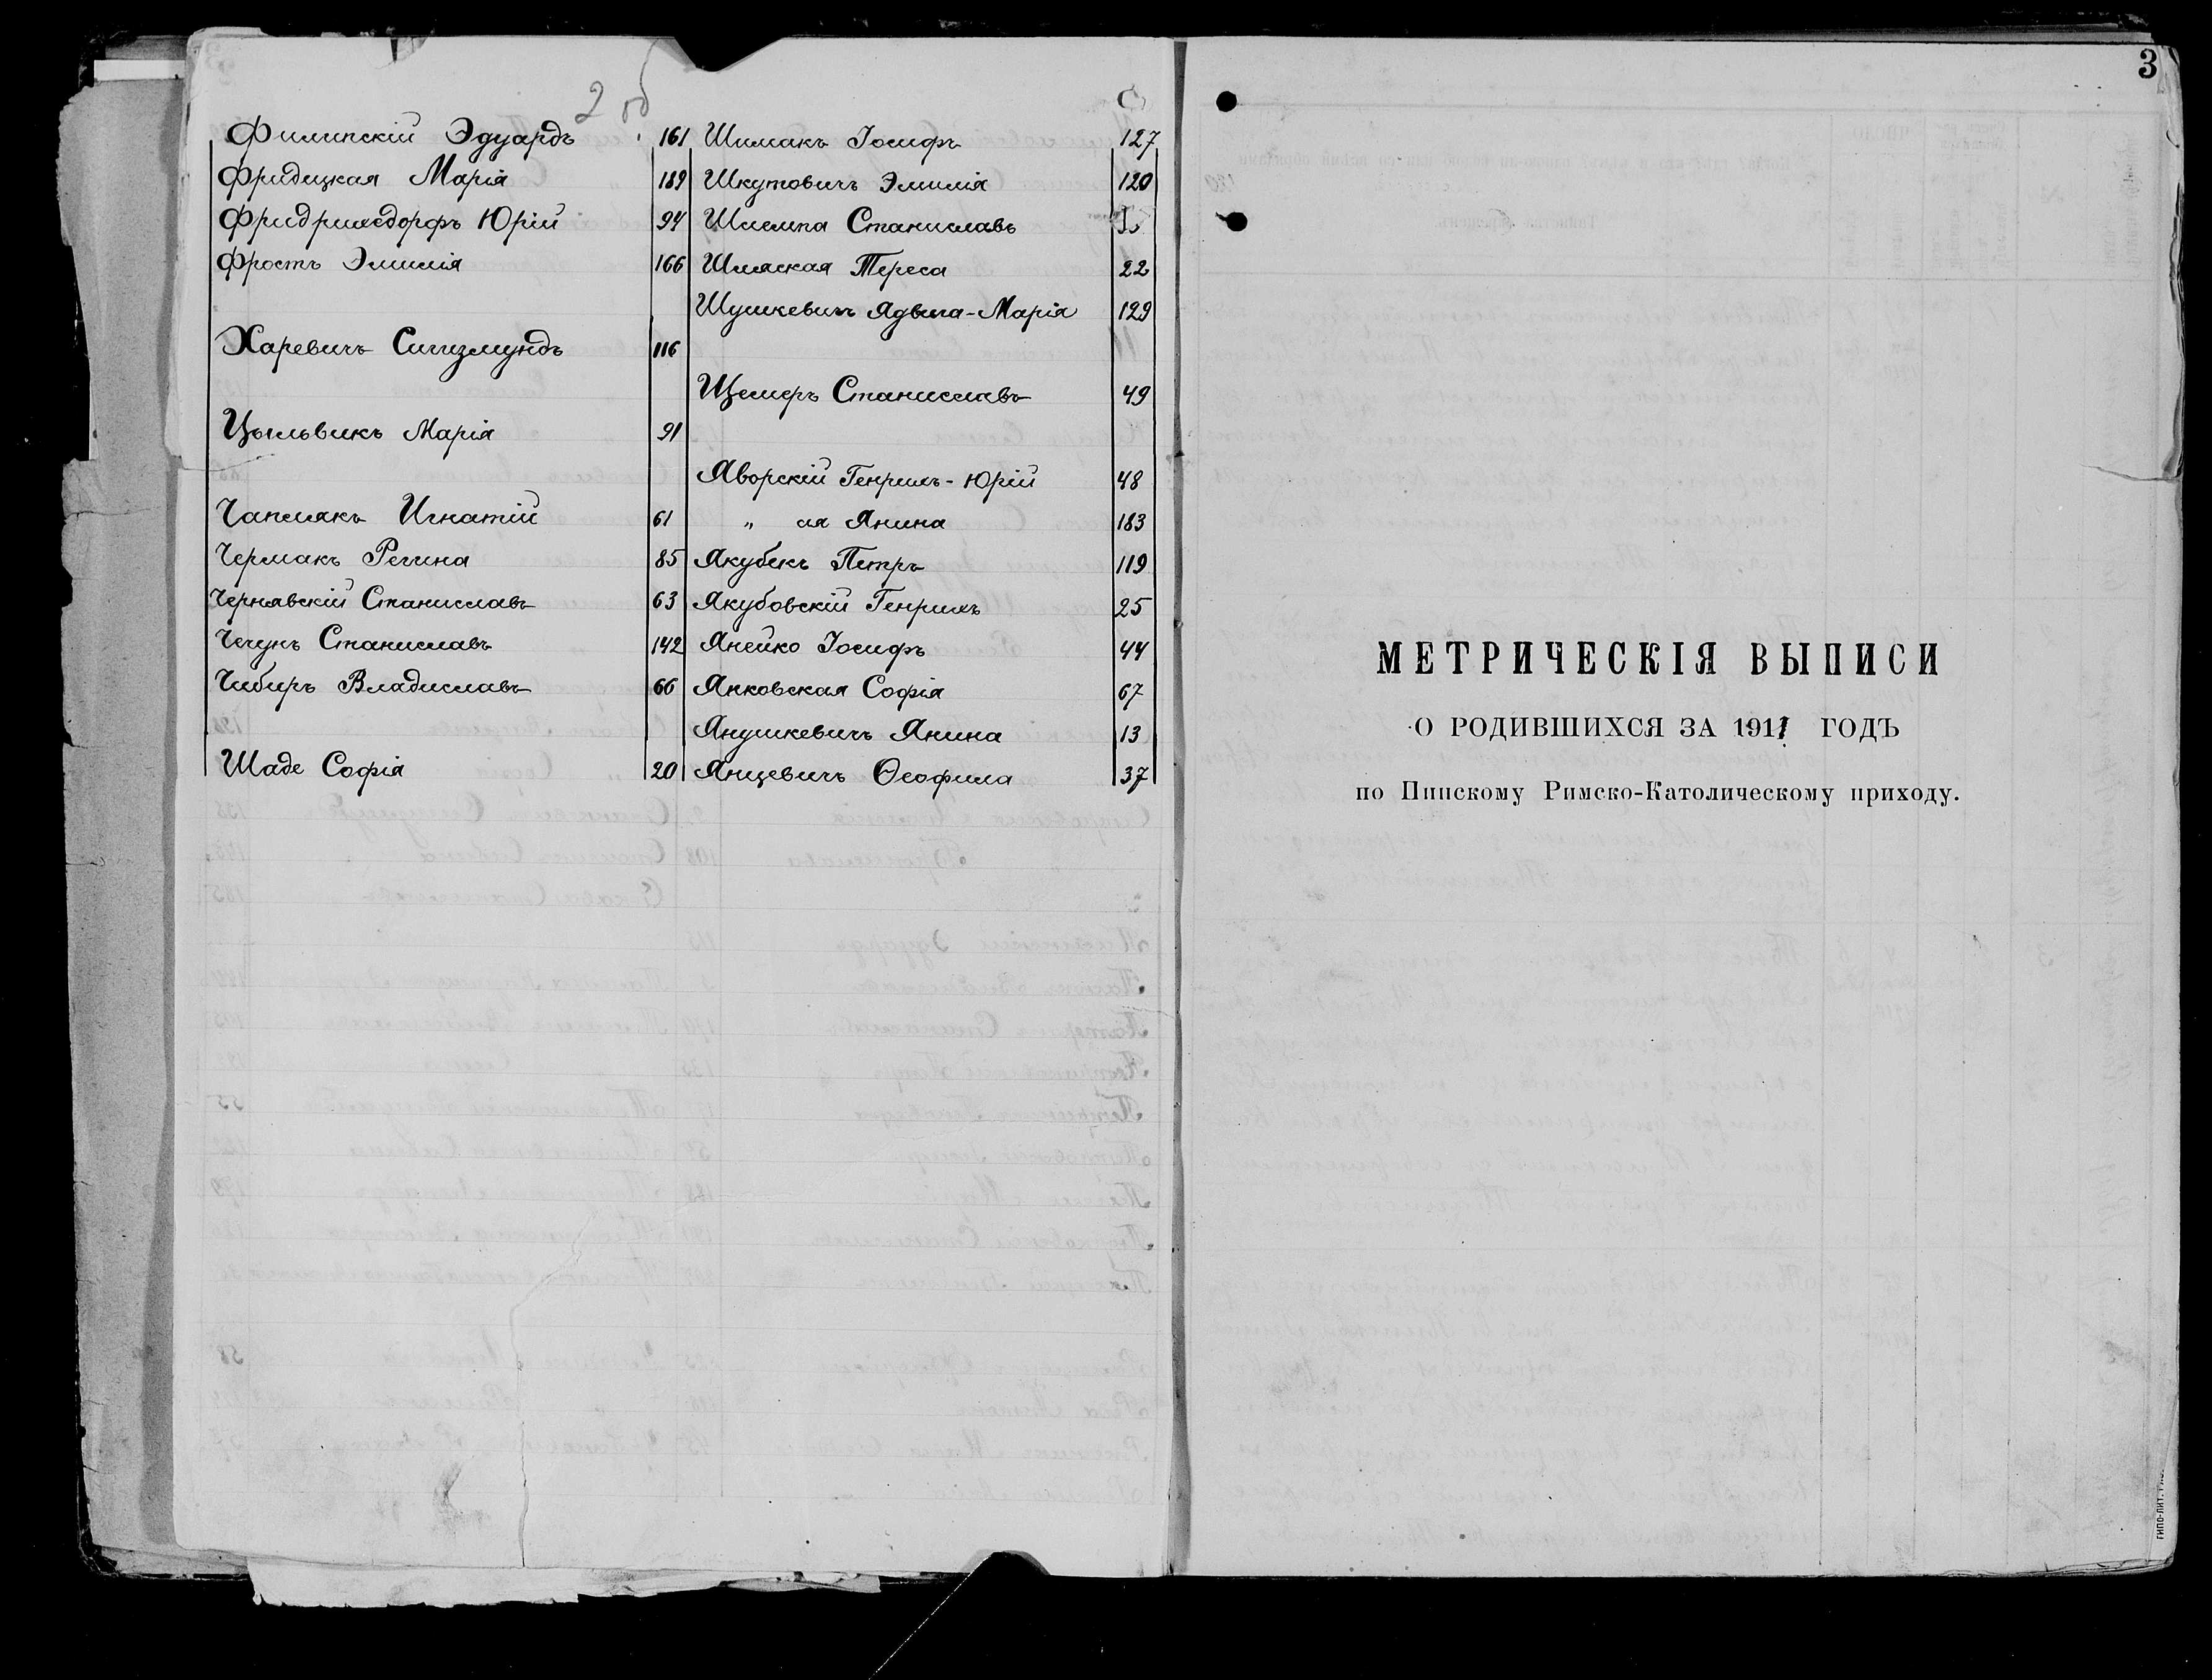 2 об
Филипскій Эдуардъ 161
Фридецкая Марія 189
Фридрихсдорфъ Юрій 94
Фростъ Эмилія 166
Харевичъ Сигизмундъ 116
Цыльвикъ Марія 91
Чаплякъ Игнатій 61
Чермакъ Регина 85
Чернявскій Станиславъ 63
Чечунъ Станиславъ 142
Чибиръ Владиславъ 66
Шаде Софія 20
Шимакъ Іосифъ 127
Шкутовичъ Эмилія 120
Станиславъ
Шляская Тереса 22
Шушкевичъ Ядвига-Марія 129
Щемеръ Станиславъ 49
Яворскій Генрихъ-Юрій 48
„ ая Янина 183
Якубекъ Петръ 119
Якубовскій Генрихъ 25
Янейко Іосифъ 44
Янковская Софія 67
Янушкевичъ Янина 13
Янцевичъ Ѳеофила 37
3
МЕТРИЧЕСКІЯ ВЫПИСИ
О РОДИВШИХСЯ ЗА 1911 ГОДЪ
по Пинскому Римско-Католическому приходу.